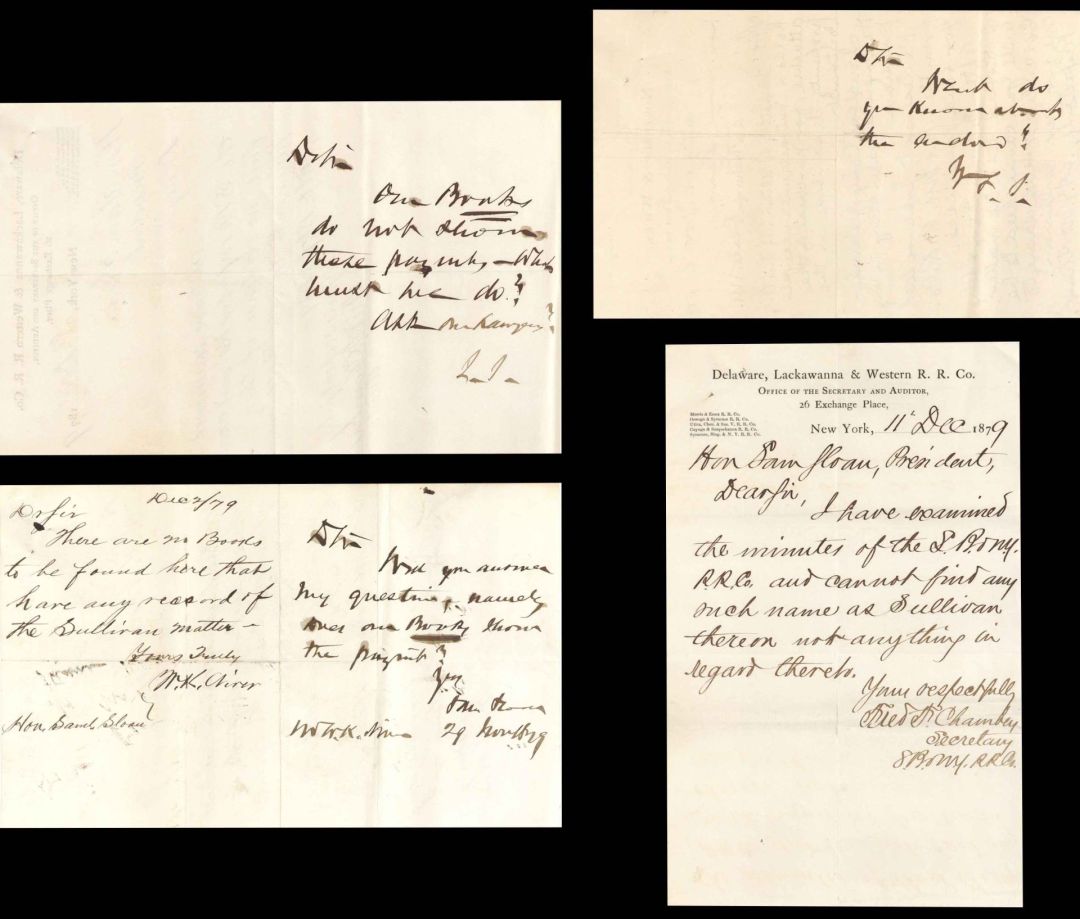 D Sir
Our Books
do not show
these paymts, – What
must we do?
Ask our Lawyer?
D Sir
What do
you know about
the
Delaware, Lackawanna & Western R. R. Co.
Office of the Secretary and Auditor,
26 Exchange Place,
Morris & Essex R. R. Co.
Oswego & Syracuse R. R. Co.
Utica, Chen. & Sus. V. R. R. Co.
Cayuga & Susquehanna R. R. Co.
Syracuse, Bing. & N. Y. R. R. Co.
New York, 11 Dec 1879
Hon Sam Sloan, President,
Dear Sir,
I have examined
the minutes of the S. B & N.Y.
R.R. Co. and cannot find any
such name as Sullivan
thereon not anything in
regard thereto.
Yours respectfully
Fred F. Chambers
Secretary
S.B & N.Y. R.R. Co.
Dec 2/79
Dr Sir
There are no Books
to be found here that
have any record of
the Sullivan matter –
Yours Truly
W.K. Niver
Hon. Saml Sloan
D Sir
Will you answer
my question, namely
does our Books show
the paymt?
Yrs
Sam Sloan
Mr W.K. Niver 29 Nov 1879